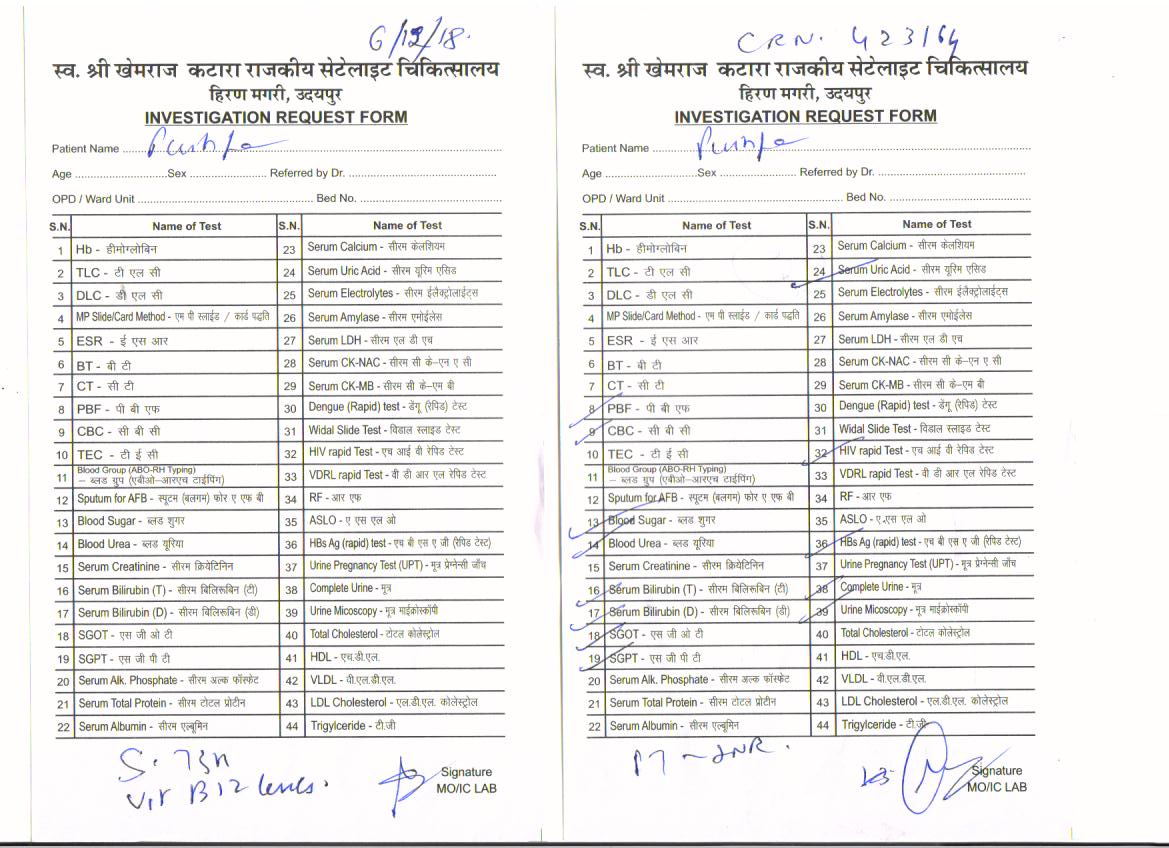 6/12/18.
स्व. श्री खेमराज कटारा राजकीय सेटेलाइट चिकित्सालय
हिरण मगरी, उदयपुर
INVESTIGATION REQUEST FORM
Patient Name Pushpa
Age Sex Referred by Dr.
OPD / Ward Unit Bed No.
S.N. Name of Test S.N. Name of Test
1 Hb - हीमोग्लोबिन 23 Serum Calcium - सीरम केलशियम
2 TLC - टी एल सी 24 Serum Uric Acid - सीरम यूरिम एसिड
3 DLC - डी एल सी 25 Serum Electrolytes - सीरम ईलैक्ट्रोलाईट्स
4 MP Slide/Card Method - एम पी स्लाईड / कार्ड पद्धति 26 Serum Amylase - सीरम एमोईलेस
5 ESR - ई एस आर 27 Serum LDH - सीरम एल डी एच
6 BT - बी टी 28 Serum CK-NAC - सीरम सी के–एन ए सी
7 CT - सी टी 29 Serum CK-MB - सीरम सी के–एम बी
8 PBF - पी बी एफ 30 Dengue (Rapid) test - डेंगू (रेपिड) टेस्ट
9 CBC - सी बी सी 31 Widal Slide Test - विडाल स्लाइड टेस्ट
10 TEC - टी ई सी 32 HIV rapid Test - एच आई वी रेपिड टेस्ट
11 Blood Group (ABO-RH Typing) – ब्लड ग्रुप (एबीओ–आरएच टाईपिंग) 33 VDRL rapid Test - वी डी आर एल रेपिड टेस्ट
12 Sputum for AFB - स्पूटम (बलगम) फोर ए एफ बी 34 RF - आर एफ
13 Blood Sugar - ब्लड शुगर 35 ASLO - ए एस एल ओ
14 Blood Urea - ब्लड यूरिया 36 HBs Ag (rapid) test - एच बी एस ए जी (रेपिड टेस्ट)
15 Serum Creatinine - सीरम क्रियेटिनिन 37 Urine Pregnancy Test (UPT) - मूत्र प्रेग्नेन्सी जाँच
16 Serum Bilirubin (T) - सीरम बिलिरूबिन (टी) 38 Complete Urine - मूत्र
17 Serum Bilirubin (D) - सीरम बिलिरूबिन (डी) 39 Urine Micoscopy - मूत्र माईक्रोस्कॉपी
18 SGOT - एस जी ओ टी 40 Total Cholesterol - टोटल कोलेस्ट्रोल
19 SGPT - एस जी पी टी 41 HDL - एच.डी.एल.
20 Serum Alk. Phosphate - सीरम अल्क फॉस्फेट 42 VLDL - वी.एल.डी.एल.
21 Serum Total Protein - सीरम टोटल प्रोटीन 43 LDL Cholesterol - एल.डी.एल. कोलेस्ट्रोल
22 Serum Albumin - सीरम एल्बूमिन 44 Trigylceride - टी.जी
Vit B12 levels.
Signature
MO/IC LAB
CRN. 423164
स्व. श्री खेमराज कटारा राजकीय सेटेलाइट चिकित्सालय
हिरण मगरी, उदयपुर
INVESTIGATION REQUEST FORM
Patient Name Pushpa
Age Sex Referred by Dr.
OPD / Ward Unit Bed No.
S.N. Name of Test S.N. Name of Test
1 Hb - हीमोग्लोबिन 23 Serum Calcium - सीरम केलशियम
2 TLC - टी एल सी 24 Serum Uric Acid - सीरम यूरिम एसिड
3 DLC - डी एल सी 25 Serum Electrolytes - सीरम ईलैक्ट्रोलाईट्स
4 MP Slide/Card Method - एम पी स्लाईड / कार्ड पद्धति 26 Serum Amylase - सीरम एमोईलेस
5 ESR - ई एस आर 27 Serum LDH - सीरम एल डी एच
6 BT - बी टी 28 Serum CK-NAC - सीरम सी के–एन ए सी
7 CT - सी टी 29 Serum CK-MB - सीरम सी के–एम बी
8 PBF - पी बी एफ 30 Dengue (Rapid) test - डेंगू (रेपिड) टेस्ट
9 CBC - सी बी सी 31 Widal Slide Test - विडाल स्लाइड टेस्ट
10 TEC - टी ई सी 32 HIV rapid Test - एच आई वी रेपिड टेस्ट
11 Blood Group (ABO-RH Typing) – ब्लड ग्रुप (एबीओ–आरएच टाईपिंग) 33 VDRL rapid Test - वी डी आर एल रेपिड टेस्ट
12 Sputum for AFB - स्पूटम (बलगम) फोर ए एफ बी 34 RF - आर एफ
13 Blood Sugar - ब्लड शुगर 35 ASLO - ए एस एल ओ
14 Blood Urea - ब्लड यूरिया 36 HBs Ag (rapid) test - एच बी एस ए जी (रेपिड टेस्ट)
15 Serum Creatinine - सीरम क्रियेटिनिन 37 Urine Pregnancy Test (UPT) - मूत्र प्रेग्नेन्सी जाँच
16 Serum Bilirubin (T) - सीरम बिलिरूबिन (टी) 38 Complete Urine - मूत्र
17 Serum Bilirubin (D) - सीरम बिलिरूबिन (डी) 39 Urine Micoscopy - मूत्र माईक्रोस्कॉपी
18 SGOT - एस जी ओ टी 40 Total Cholesterol - टोटल कोलेस्ट्रोल
19 SGPT - एस जी पी टी 41 HDL - एच.डी.एल.
20 Serum Alk. Phosphate - सीरम अल्क फॉस्फेट 42 VLDL - वी.एल.डी.एल.
21 Serum Total Protein - सीरम टोटल प्रोटीन 43 LDL Cholesterol - एल.डी.एल. कोलेस्ट्रोल
22 Serum Albumin - सीरम एल्बूमिन 44 Trigylceride - टी.जी
PT - INR.
Signature
MO/IC LAB